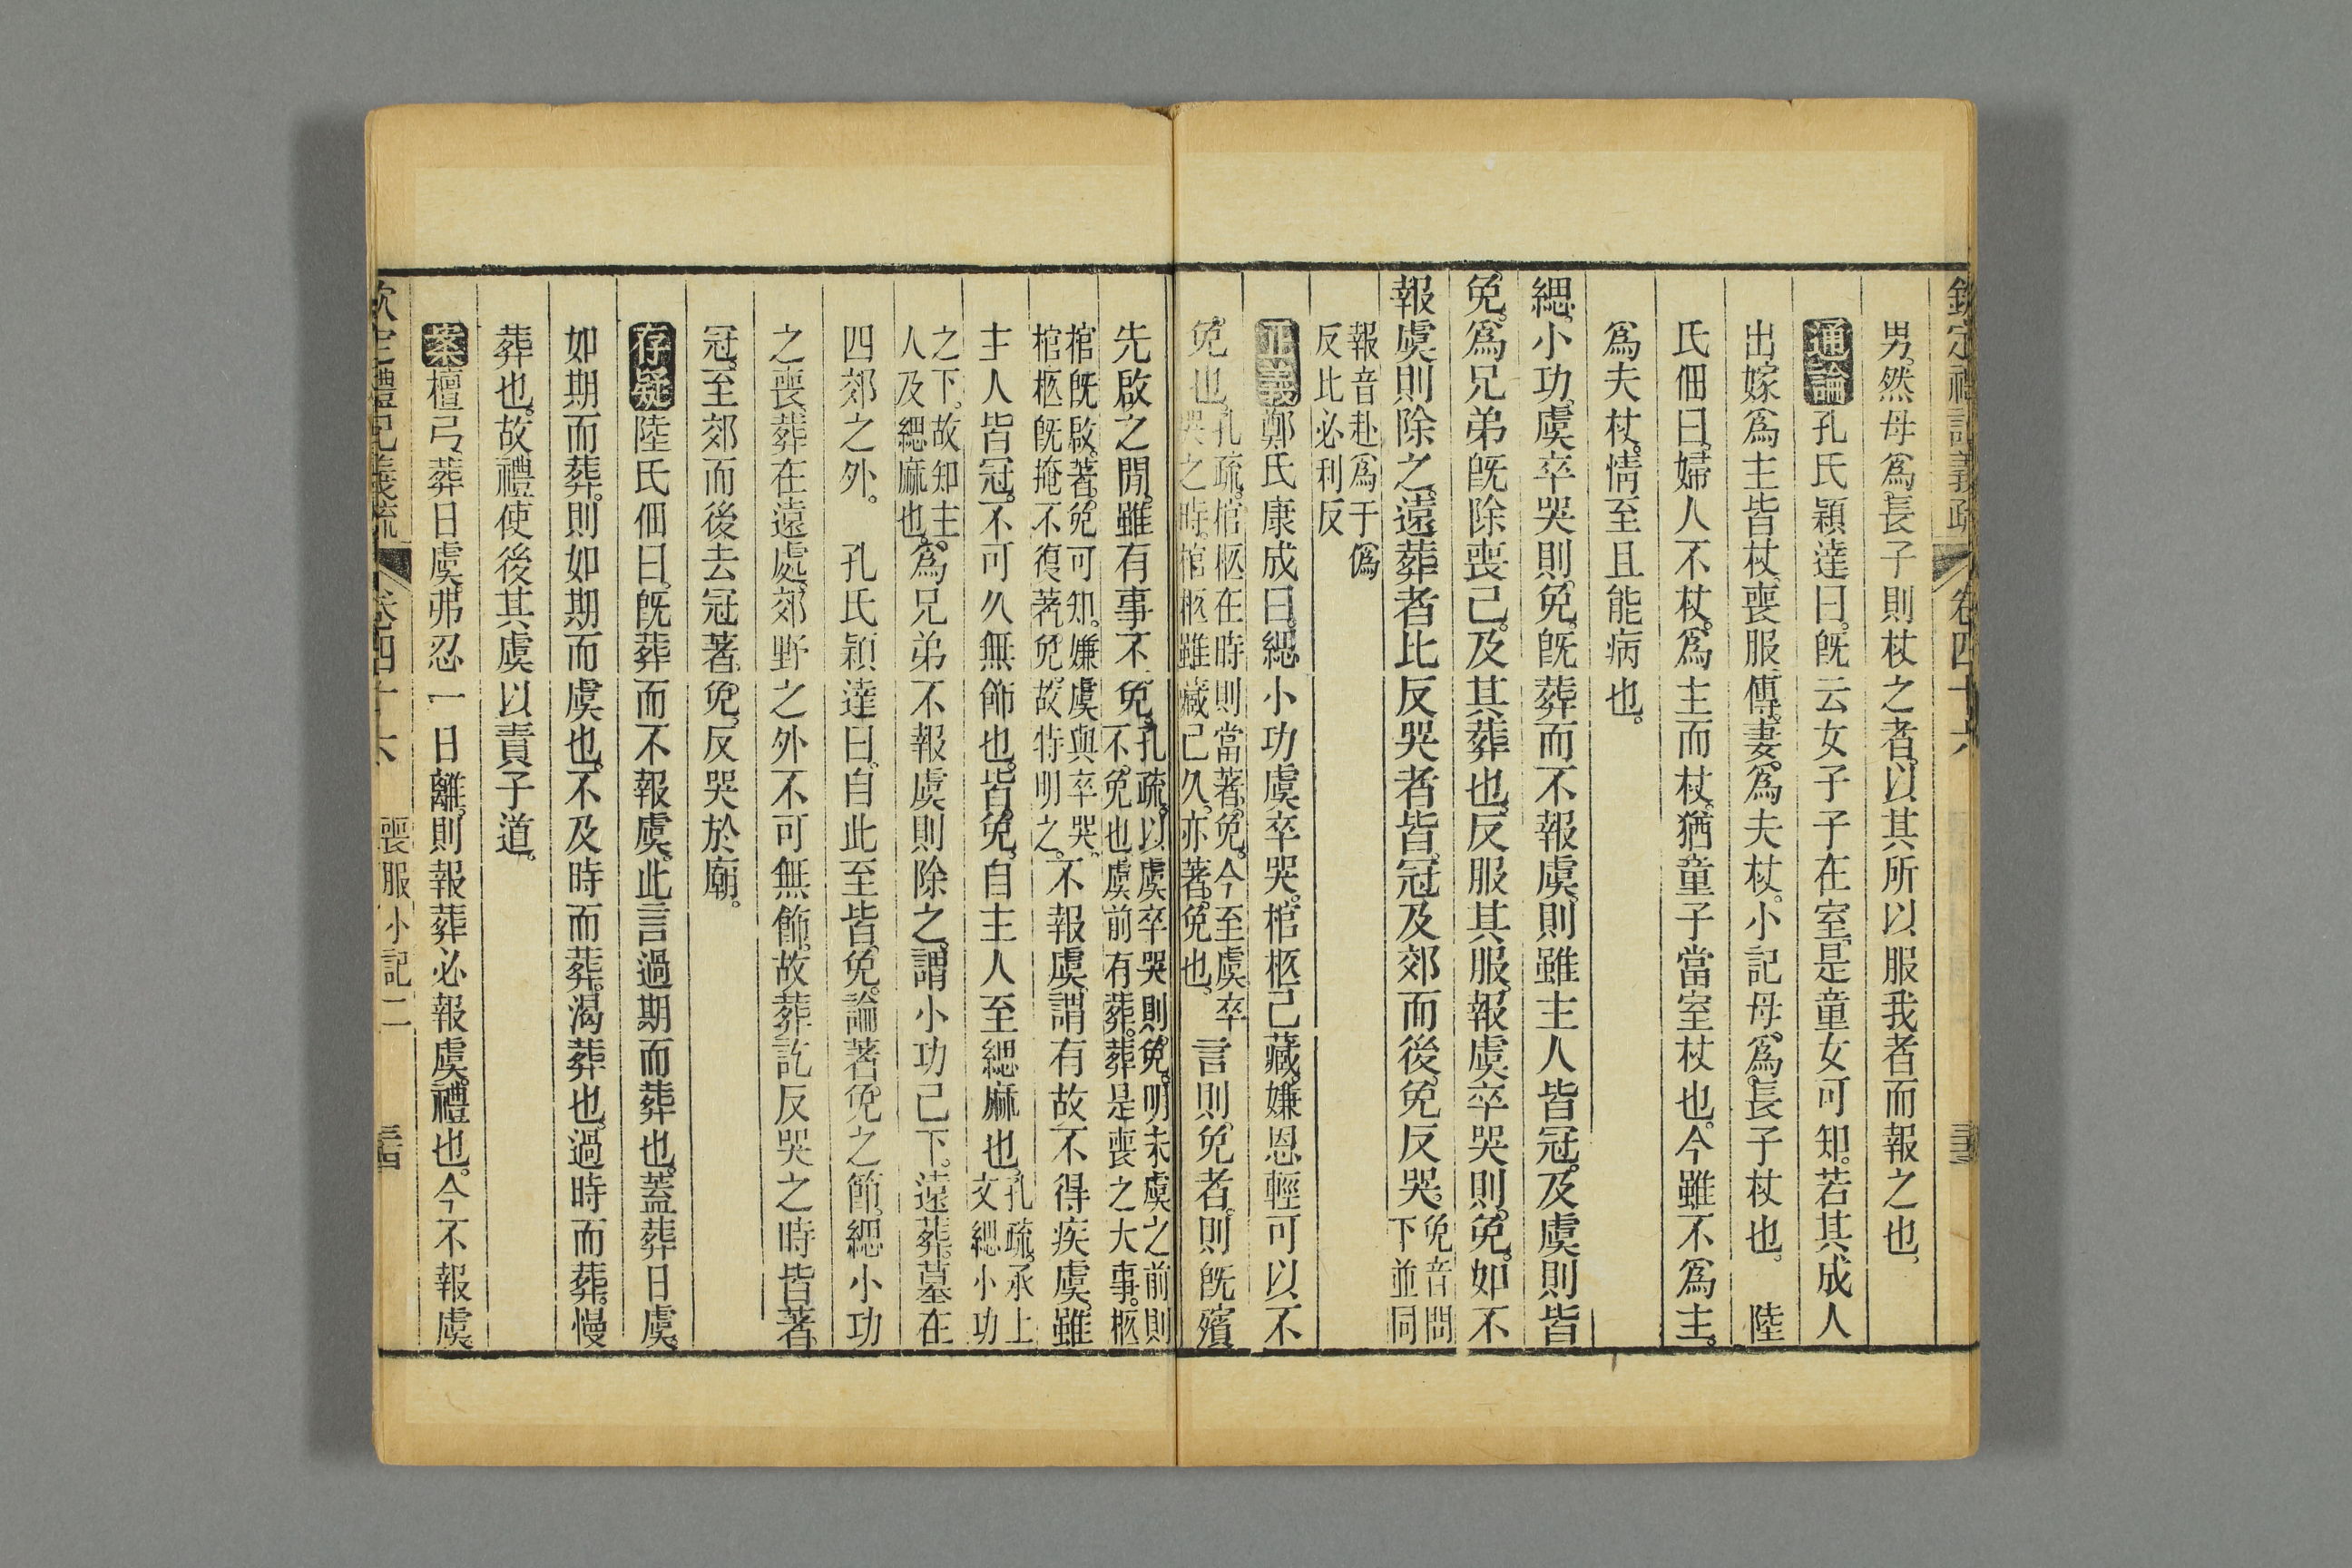 欽定禮記義疏 卷四十六
男。然母爲長子則杖之者。以其所以服我者而報之也。
通論孔氏穎達曰。旣云女子子在室。是童女可知。若其成人
出嫁爲主皆杖。喪服傳。妻爲夫杖。小記母。爲長子杖也。 陸
氏佃曰。婦人不杖。爲主而杖。猶童子當室杖也。今雖不爲主。
爲夫杖。情至且能病也。
緦。小功。虞卒哭則免。旣葬而不報虞。則雖主人皆冠。及虞則皆
免。爲兄弟旣除喪已。及其葬也。反服其服。報虞卒哭則免。如不
報虞則除之。遠葬者比反哭者皆冠。及郊而後免反哭。免音問
下並同
報音赴爲于僞
反比必利反
正義鄭氏康成曰。緦小功虞卒哭。棺柩已藏。嫌恩輕可以不
免也。孔疏。棺柩在時則當著免。今至虞卒
哭之時。棺柩雖藏已久。亦著免也。言則免者。則旣殯
先啟之閒。雖有事不免。孔疏。以虞卒哭則免。明未虞之前則
不免也。虞前有葬。葬是喪之大事。柩
棺旣啟。著免可知。嫌虞與卒哭。
棺柩旣掩不復著免。故特明之。不報虞。謂有故不得疾虞。雖
主人皆冠。不可久無飾也。皆免。自主人至緦麻也。孔疏。承上
文緦小功
之下。故知主
人及緦麻也。爲兄弟不報虞則除之。謂小功已下。遠葬。墓在
四郊之外。 孔氏穎達曰。自此至皆免。論著免之節。緦小功
之喪。葬在遠處。郊野之外不可無飾。故葬訖反哭之時皆著
冠。至郊而後去冠著免。反哭於廟。
存疑陸氏佃曰。旣葬而不報虞。此言過期而葬也。蓋葬日虞。
如期而葬。則如期而虞也。不及時而葬。渴葬也。過時而葬。慢
葬也。故禮使後其虞以責子道。
案檀弓。葬日虞。弗忍一日離。則報葬必報虞。禮也。今不報虞。
欽定禮記義疏 卷四十六 喪服小記二